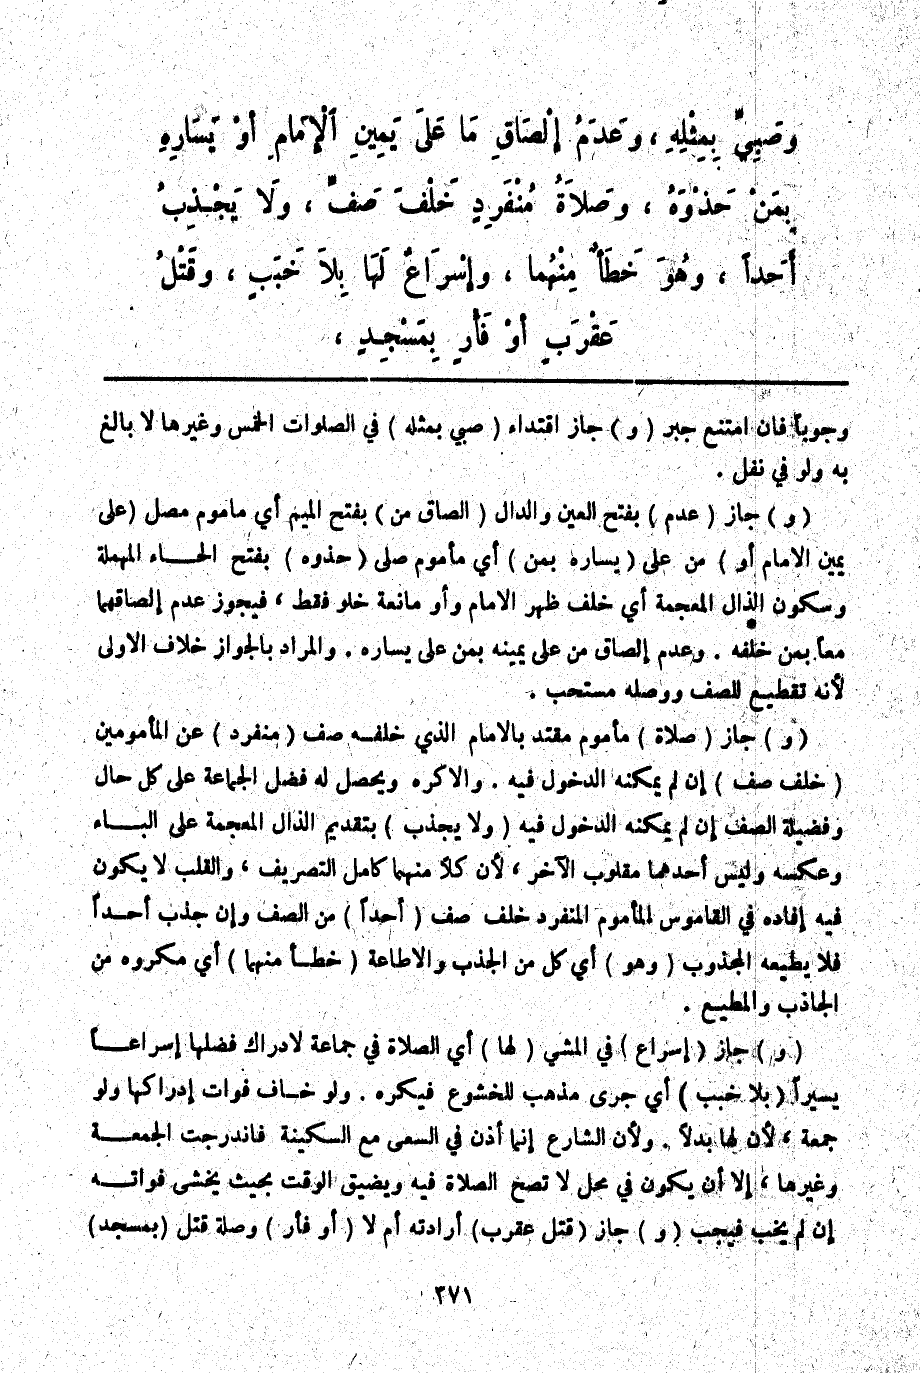 وَصَبِيٍّ بِمِثْلِهِ ، وَعَدَمُ إِلْصَاقِ مَا عَلَى يَمِينِ ٱلْإِمَامِ أَوْ يَسَارِهِ
بِمَنْ حَذْوَهُ ، وَصَلَاةُ مُنْفَرِدٍ خَلْفَ صَفٍّ ، وَلَا يَجْذِبُ
أَحَداً ، وَهُوَ خَطَأٌ مِنْهُما ، وَإِسْرَاعٌ لَهَا بِلَا خَبَبٍ ، وَقَتْلُ
عَقْرَبٍ أَوْ فَأْرٍ بِمَسْجِدٍ ،
وجوباً فان امتنع جبر ( و ) جاز اقتداء ( صبي بمثله ) في الصلوات الخمس وغيرها لا بالغ
به ولو في نفل .
( و ) جاز ( عدم ) بفتح العين والدال ( الصاق من ) بفتح الميم أي ماموم مصل (على
يمين الامام أو ) من على ( يساره بمن ) أي مأموم صلى ( حذوه ) بفتح الحاء المهملة
وسكون الذال المعجمة أي خلف ظهر الامام وأو مانعة خلو فقط ، فيجوز عدم إلصاقهما
معاً بمن خلفه . وعدم إلصاق من على يمينه بمن على يساره . والمراد بالجواز خلاف الاولى
لأنه تقطيع للصف ووصله مستحب .
( و ) جاز ( صلاة ) مأموم مقتد بالامام الذي خلفه صف ( منفرد ) عن المأمومين
( خلف صف ) إن لم يمكنه الدخول فيه . والاكره ويحصل له فضل الجماعة على كل حال
وفضيلة الصف إن لم يمكنه الدخول فيه ( ولا يجذب ) بتقديم الذال المعجمة على الباء
وعكسه وليس أحدهما مقلوب الآخر ، لأن كلاً منهما كامل التصريف ، والقلب لا يكون
فيه إفاده في القاموس المأموم المنفرد خلف صف ( أحداً ) من الصف وإن جذب أحداً
فلا يطيعه المجذوب ( وهو ) أي كل من الجذب والاطاعة ( خطأ منهما ) أي مكروه من
الجاذب والمطيع .
( و ) جاز ( إسراع ) في المشي ( لها ) أي الصلاة في جماعة لادراك فضلها إسراعاً
يسيراً ( بلا خبب ) أي جرى مذهب للخشوع فيكره . ولو خاف فوات إدراكها ولو
جمعة ، لأن لها بدلاً . ولأن الشارع إنما أذن في السعى مع السكينة فاندرجت الجمعة
وغيرها ، إلا أن يكون في محل لا تصح الصلاة فيه ويضيق الوقت بحيث يخشى فواته
إن لم يخب فيجب ( و ) جاز ( قتل عقرب) أرادته أم لا ( أو فأر ) وصلة قتل (بمسجد)
٣٧١